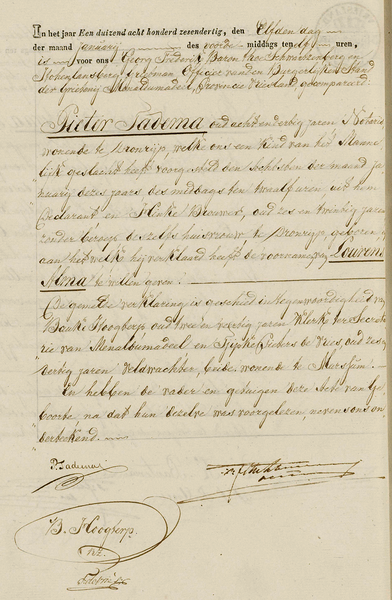 In het jaar Een duizend acht honderd zesendertig, den Elfden dag
der maand januarij des voorde middags ten elf uren,
is voor ons Georg Frederik Baron thoe Schwartzenberg en
Hohenlansberg Grietman Officier van den Burgerlijken Stand
der Grietenij Menaldumadeel, Provincie Vriesland gecompareerd.
Pieter Tadema oud acht en dertig jaren Notaris
wonende te Dronrijp, welke ons een Kind van het Manne
lijk geslacht heeft voorgesteld den achtsten der maand ja
nuarij dezes jaars des middags ten twaalf uren uit hem
Declarant en Hinke Brouwer, oud zes en twintig jaren
zonder beroep deszelfs huisvrouw te Dronrijp geboren
aan hetwelke hij verklaard heeft de voornamen van Lourens
Alma te willen geven.
De gemelde verklaring is geschied in tegenwoordigheid van
Bouke Hoogterp oud twee en veertig jaren Klerk ter Secreta
rie van Menaldumadeel en Sijtse Pieters de Vries, oud zes en
veertig jaren Veldwachter, beide wonende te Marssum.
En hebben de vader en getuigen deze Acte van Ge
boorte, na dat hun dezelve was voorgelezen, nevens ons on
derteekend.
P. Tadema
B. Hoogterp